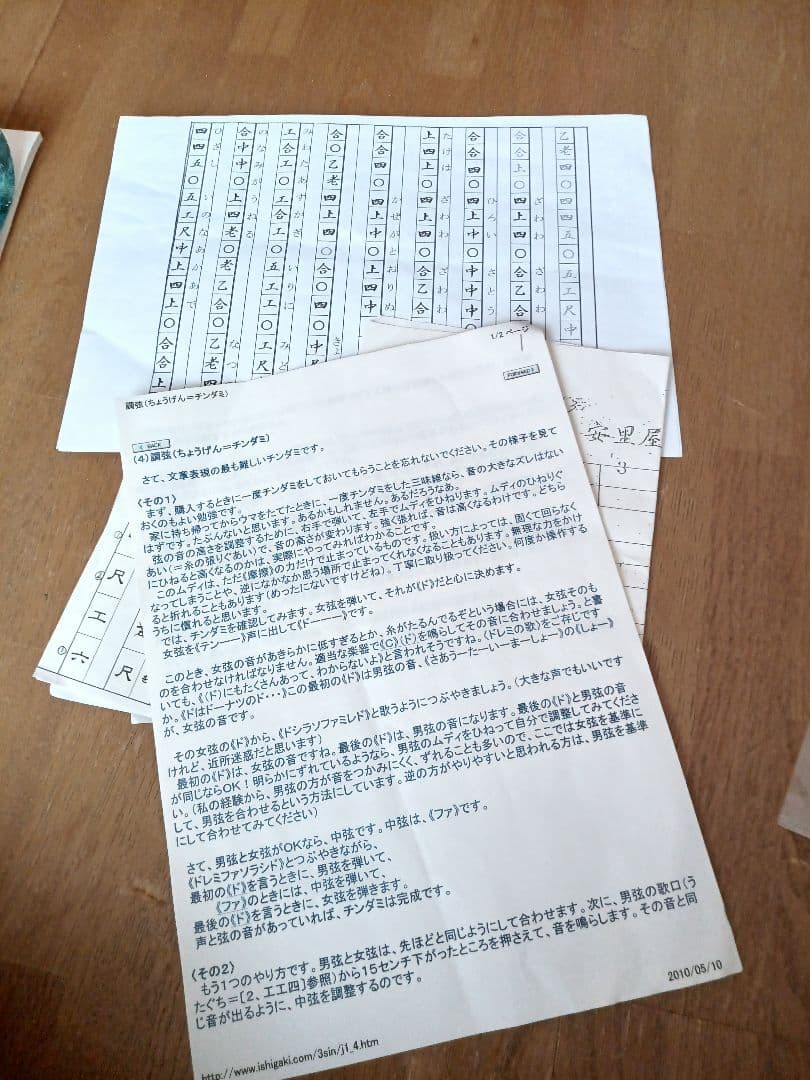 乙老四〇四四五〇五工尺中
ざわわ ざわわ
合合上〇四上四〇合乙合
ひろい さとう
合合四〇四上中〇中中〇
たけは ざわわ ざわわ
上四上〇四上四〇合乙
かぜがとおりぬ
合合四〇四上中〇上四中
合〇乙老四上四〇合〇四〇中
みわたあすかぎ いりに みど
工合工〇工合工〇五工工〇工尺
のなみがうねる なつ
合中中〇上四老〇老乙合〇乙老四
ひざし いのなあかあで
四四五〇五工尺中上四上〇合合上
安里屋
尺
工
六
尺
1/2 ページ
調弦(ちょうげん＝チンダミ)
FORWARD
BACK
(4)調弦(ちょうげん＝チンダミ)
さて、文章表現の最も難しいチンダミです。
〈その1〉
まず、購入するときに一度チンダミをしておいてもらうことを忘れないでください。その様子を見て
おくのもよい勉強です。
家に持ち帰ってからウマをたてたときに、一度チンダミをした三味線なら、音の大きなズレはない
はずです。たぶんないと思います。あるかもしれません。あるだろうなあ。
弦の音の高さを調整するために、右手で弾いて、左手でムディをひねります。ムディのひねりぐ
あい(＝糸の張りぐあい)で、音の高さが変わります。強く張れば、音は高くなるわけです。どちら
にひねると高くなるのかは、実際にやってみればわかることです。
このムディは、ただ《摩擦》の力だけで止まっているものです。扱い方によっては、固くて回らなく
なってしまうことや、逆になかなか思う場所で止まってくれなくなることもあります。無理な力をかけ
ると折れることもあります(めったにないですけどね)。丁寧に取り扱ってください。何度か操作する
うちに慣れると思います。
では、チンダミを確認してみます。女弦を弾いて、それが《ド》だと心に決めます。
女弦を《テン――》声に出して《ド―――》です。
このとき、女弦の音があきらかに低すぎるとか、糸がたるんでるぞという場合には、女弦そのも
のを合わせなければなりません。適当な楽器で《C》(ド)を鳴らしてその音に合わせましょう。と書
いても、《(ド)にもたくさんあって、わからないよ》と言われそうですね。〈ドレミの歌》をご存じです
か。《ドはドーナツのド・・・》この最初の《ド》は男弦の音、《さあうーたーいーまーしょー》の《しょー》
が、女弦の音です。
その女弦の《ド》から、《ドシラソファミレド》と歌うようにつぶやきましょう。(大きな声でもいいです
けれど、近所迷惑だと思います)
最初の《ド》は、女弦の音ですね。最後の《ド》は、男弦の音になります。最後の《ド》と男弦の音
が同じならOK！明らかにずれているようなら、男弦のムディをひねって自分で調整してみてくださ
い。(私の経験から、男弦の方が音をつかみにくく、ずれることも多いので、ここでは女弦を基準に
して、男弦を合わせるという方法にしています。逆の方がやりやすいと思われる方は、男弦を基準
にして合わせてみてください)
さて、男弦と女弦がOKなら、中弦です。中弦は、《ファ》です。
《ドレミファソラシド》とつぶやきながら、
最初の《ド》を言うときに、男弦を弾いて、
《ファ》のときには、中弦を弾いて、
最後の《ド》を言うときに、女弦を弾きます。
声と弦の音があっていれば、チンダミは完成です。
〈その2〉
もう1つのやり方です。男弦と女弦は、先ほどと同じようにして合わせます。次に、男弦の歌口(う
たぐち＝[2、工工四]参照)から15センチ下がったところを押さえて、音を鳴らします。その音と同
じ音が出るように、中弦を調整するのです。
http://www.ishigaki.com/3sin/j1_4.htm
2010/05/10